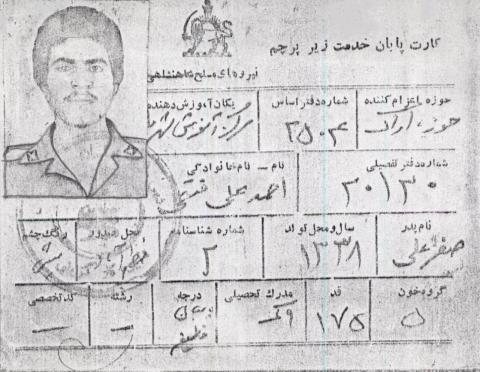 کارت پایان خدمت زیر پرچم
نیروهای مسلح شاهنشاهی
حوزه اعزام کننده
شماره دفتر اساس
یکان آموزش دهنده
حوزه اراک
۲۵۰۴
مرکز آموزش
شماره دفتر تفصیلی
نام - نام خانوادگی
۳۰۱۳۰
احمد علی
نام پدر
سال و محل تولد
شماره شناسنامه
محل صدور
رنگ چشم
صفرعلی
۱۳۳۸
۲
گروه خون
قد
مدرک تحصیلی
درجه
رشته
کد تخصصی
۱۷۵
—
—